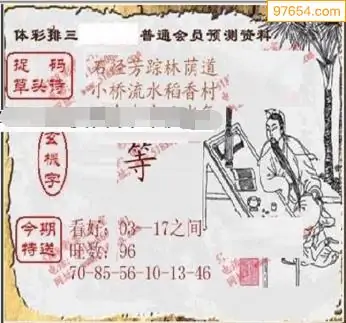 97654.com
体彩排三 普通会员预测资料
捉码
草头诗
石径芳踪林荫道
小桥流水稻香村
玄机字
等
今期
特送
看好:03--17之间
旺数:96
70-85-56-10-13-46